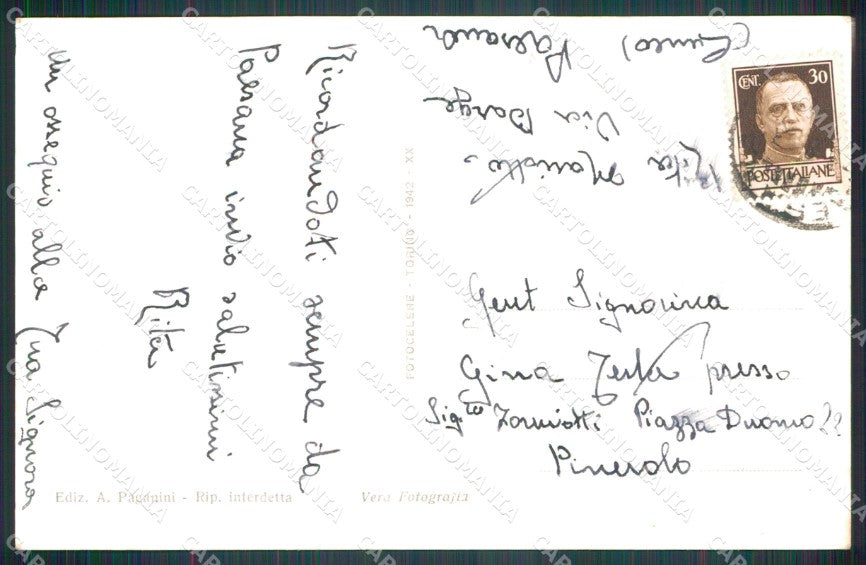 Ricordandoti sempre da
Paesana invio salutissimi
Rita
un ossequio alla Tua Signora
Rita Mariotto
Via Barge
Paesana
(Cuneo)
CENT. 30
POSTE ITALIANE
Gent Signorina
Gina Testa presso
Sig.re Zorniotti Piazza Duomo 22
Pinerolo
FOTOCELERE - TORINO - 1942 - XX
Ediz. A. Paganini - Rip. interdetta
Vera Fotografia
CARTOLINOMANIA